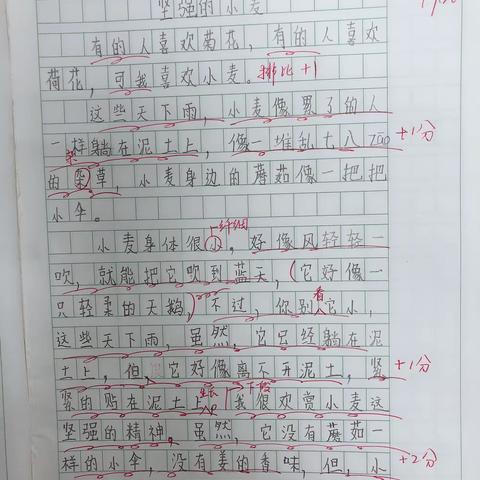 坚强的小麦
有的人喜欢菊花，有的人喜欢
荷花，可我喜欢小麦。排比+1
这些天下雨，小麦像累了的人
一样躺在泥土上，像一堆乱七八zāo +1分
的杂草，小麦身边的蘑菇像一把把
小伞。
纤细
小麦身体很小，好像风轻轻一
吹，就能把它吹到蓝天，（它好像一
只轻柔的天鹅）不过，你别看它小，
这些天下雨，虽然，它已经躺在泥
土上，但，它好像离不开泥土，紧 +1分
紧的贴在泥土上。我很欢赏小麦这
下段
坚强的精神，虽然，它没有蘑菇一
样的小伞，没有姜的香味，但，小 +2分